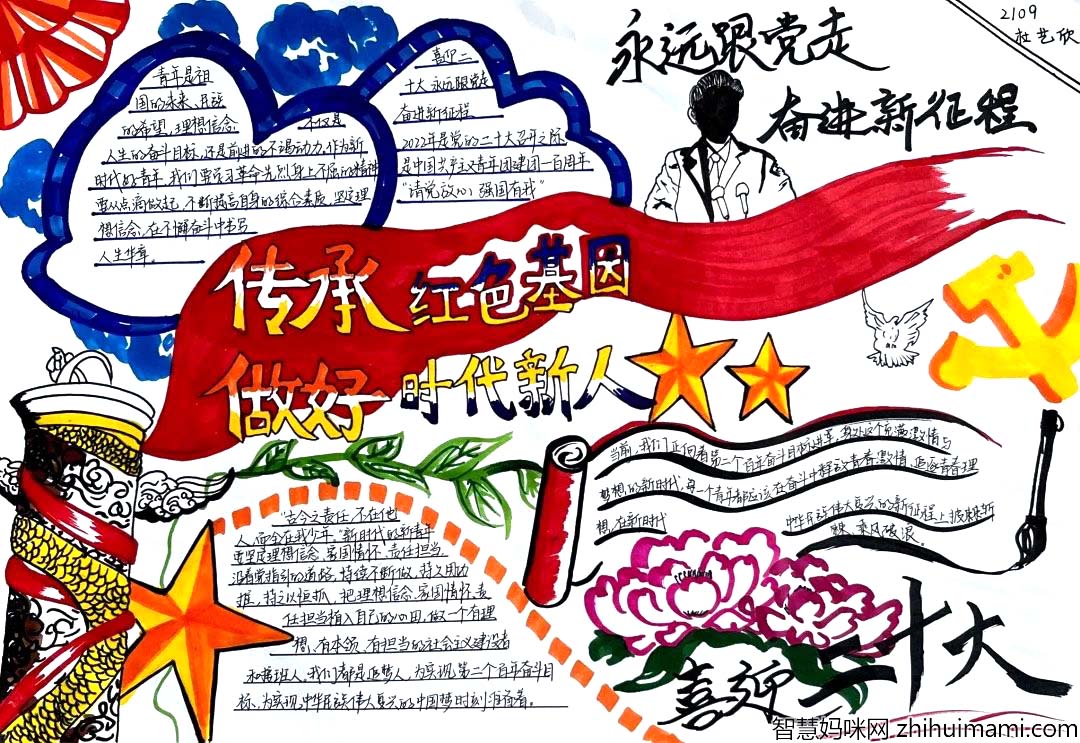 2109
杜艺欣
永远跟党走
奋进新征程
青年是祖
国的未来、民族
的希望,理想信念
不仅是
人生的奋斗目标,还是前进的不竭动力,作为新
时代的青年,我们要学习革命先烈身上不屈的精神
要从点滴做起,不断提高自身的综合素质,坚定理
想信念,在不懈奋斗中书写
人生华章。
喜迎二
十大 永远跟党走
奋进新征程
2022年是党的二十大召开之际
是中国共产主义青年团建团一百周年
“请党放心,强国有我”
传承红色基因
做好时代新人
当前,我们正向着第二个百年奋斗目标进军,身处这个充满激情与
梦想的新时代,每一个青年都应该在奋斗中释放青春激情、追逐青春理
想,在新时代
中华民族伟大复兴的新征程上披荆斩
棘、乘风破浪。
“古今之责任,不在他
人,而全在我少年”新时代的新青年
要坚定理想信念、家国情怀、责任担当
沿着党指引的道路,持续不断做、持久用功
推,持之以恒抓,把理想信念、家国情怀、责
任担当植入自己的心田,做一个有理
想、有本领、有担当的社会主义建设者
和接班人,我们都是追梦人,为实现第二个百年奋斗目
标,为实现中华民族伟大复兴的中国梦时刻准备着。
喜迎二十大
智慧妈咪网 zhihuimami.com